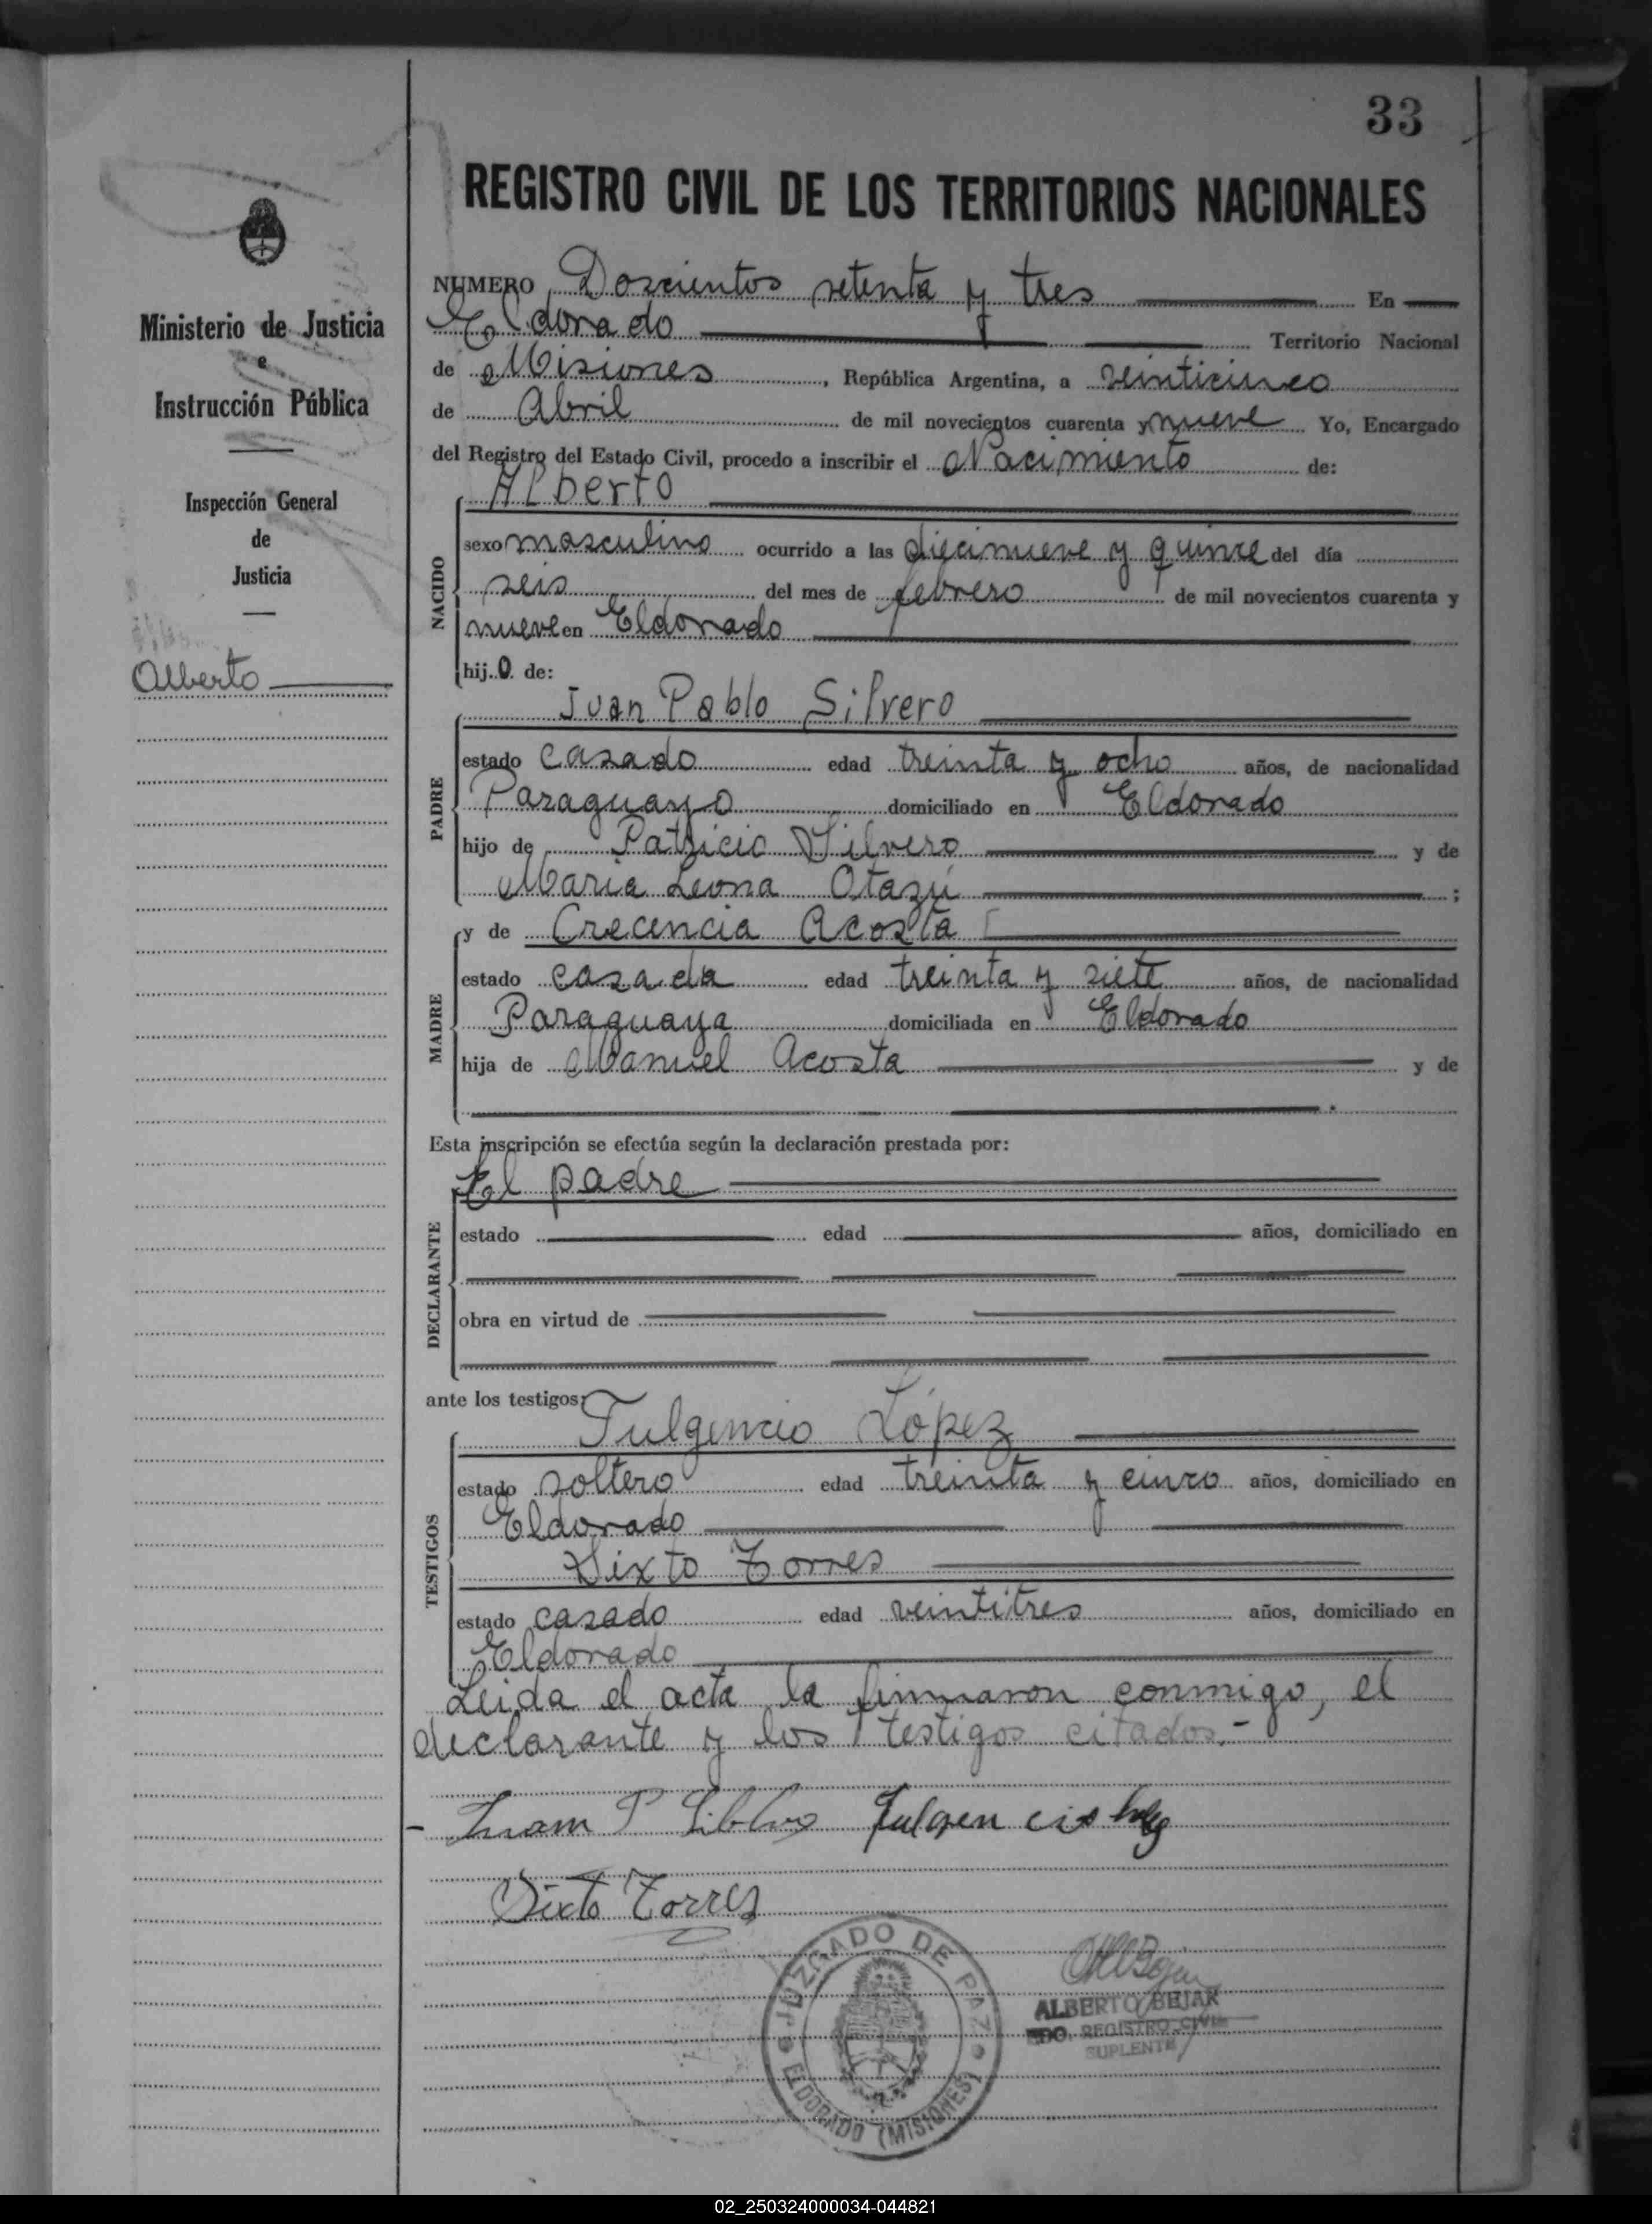 33
REGISTRO CIVIL DE LOS TERRITORIOS NACIONALES
Ministerio de Justicia
e
Instrucción Pública
Inspección General
de
Justicia
Alberto
NUMERO Doscientos setenta y tres En
Eldorado Territorio Nacional
de Misiones, República Argentina, a veinticinco
de Abril de mil novecientos cuarenta y nueve Yo, Encargado
del Registro del Estado Civil, procedo a inscribir el Nacimiento de:
NACIDO
Alberto
sexo masculino ocurrido a las diecinueve y quince del día
seis del mes de febrero de mil novecientos cuarenta y
nueve en Eldorado
hijo de:
PADRE
Juan Pablo Silvero
estado casado edad treinta y ocho años, de nacionalidad
Paraguayo domiciliado en Eldorado
hijo de Patricio Silvero y de
Maria Leona Otazú ;
MADRE
y de Crecencia Acosta
estado casada edad treinta y siete años, de nacionalidad
Paraguaya domiciliada en Eldorado
hija de Manuel Acosta y de
Esta inscripción se efectúa según la declaración prestada por:
DECLARANTE
El padre
estado edad años, domiciliado en
obra en virtud de
ante los testigos:
TESTIGOS
Fulgencio López
estado soltero edad treinta y cinco años, domiciliado en
Eldorado
Sixto Torres
estado casado edad veintitres años, domiciliado en
Eldorado
Leida el acta la firmaron conmigo, el
declarante y los testigos citados.-
Juam P Fulgencio
Sixto Torres
JUZGADO DE PAZ
ELDORADO (MISIONES)
ALBERTO BEJAR
EDO. REGISTRO CIVIL
SUPLENTE
02_250324000034-044821